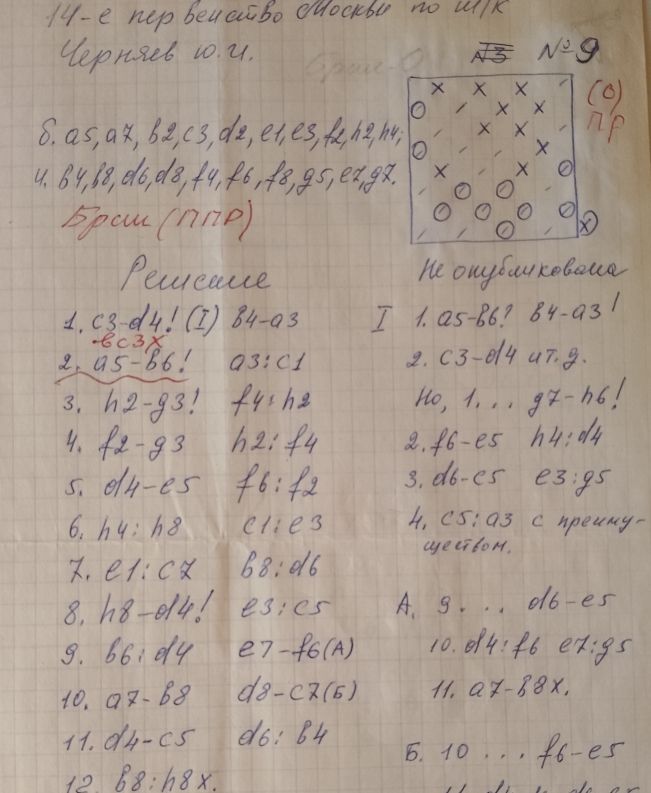 14-е первенство Москвы по ш/к
Черняев Ю.И.
№9
(О)
ПР
б. a5, a7, b2, c3, d2, e1, e3, f2, h2, h4;
ч. b4, b8, d6, d8, f4, f6, f8, g5, e7, g7.
Брак (ППР)
Решение
Не опубликована
1. c3-d4! (I) b4-a3
вс3х
2. a5-b6! a3:c1
3. h2-g3! f4:h2
4. f2-g3 h2:f4
5. d4-e5 f6:f2
6. h4:h8 c1:e3
7. e1:c7 b8:d6
8. h8-d4! e3:c5
9. b6:d4 e7-f6(А)
10. a7-b8 d8-c7(Б)
11. d4-c5 d6:b4
12. b8:h8x.
I 1. a5-b6? b4-a3!
2. c3-d4 и т.д.
Но, 1... g7-h6!
2. f6-e5 h4:d4
3. d6-c5 e3:g5
4. c5:a3 с преиму-
ществом.
А. 9... d6-e5
10. d4:f6 e7:g5
11. a7-b8x.
Б. 10 ... f6-e5